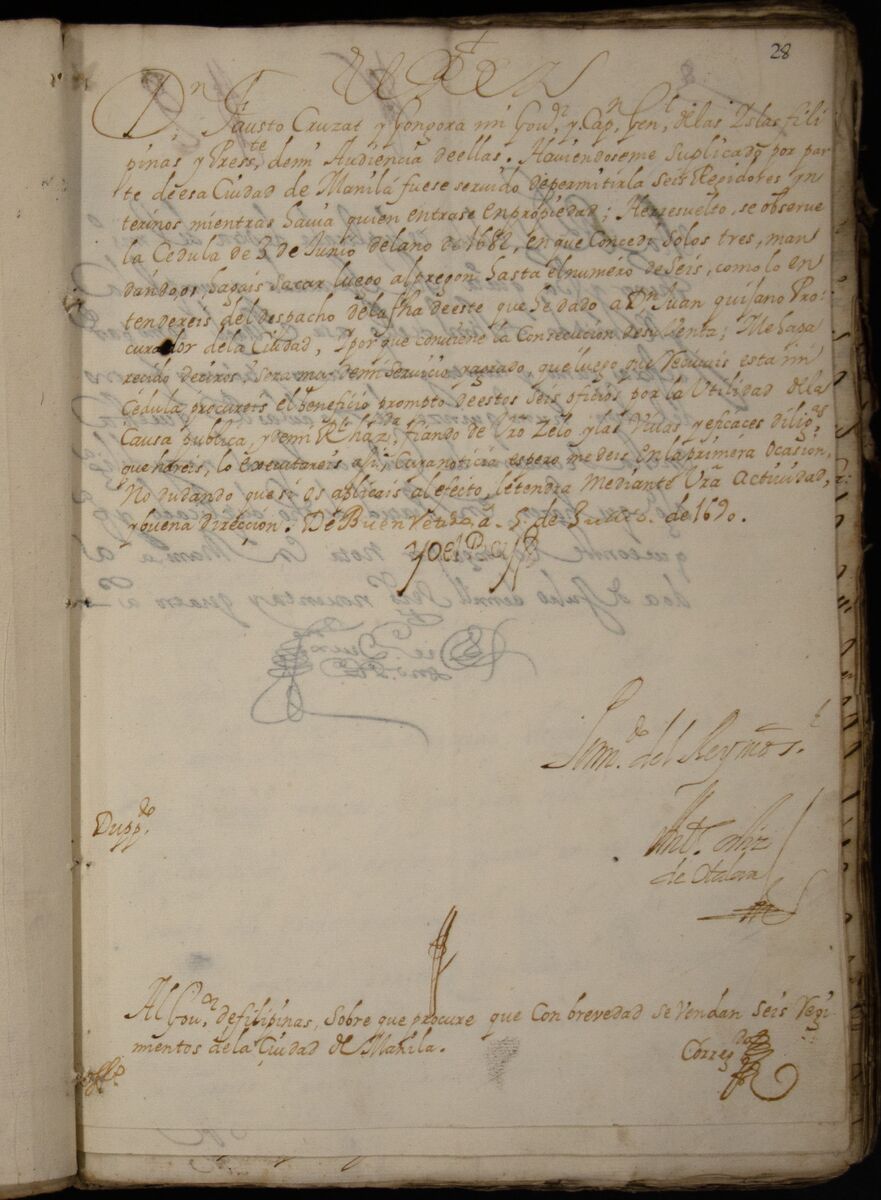 28
El Rey
Dn. Fausto Cruzat y Gongora mi Gouor. y Capn. Genl. de las Yslas fili
pinas y Presste. demi Audiencia deellas. Hauiendoseme Suplicado por par
te deesa Ciudad de Manila fuese seruido depermitirla Seis Regidores yn
terinos mientras hauia quien entrase enpropiedad; Heresuelto, se obserue
la Cedula de 3 de Junio delano de 1682, en que Concedi solos tres, man
dandoos, hagais sacar luego alpregon hasta elnumero de Seis, como lo en
tendereis del despacho dela fha deeste que se dado a Dn. Juan quijano Pro
curador dela Ciudad, Y por que conuiene la Consecucion desu Venta; Me ha pa
recido deciros, sera mui demi Seruicio, y agrado, que luego que Reciuais esta mi
Cedula procureis el beneficio prompto deestos Seis oficios por la Utilidad dela
Causa publica, y demi Rl. hazda. fiando de Uro Zelo y las Viuas y eficaces diligas.
que hareis, lo executareis asi, Cuia noticia espero me deis en la primera Ocasion,
No dudando que si os aplicais al efecto, le tendra Mediante Vra Actiuidad,
y buena direccion. De Buen Retiro a 5 de de 1690.
Yo el Rey
Pormdo. del Rey nro sr.
Antto. ortiz
de Otalora
Dupp.do
Al Gouor. defilipinas, Sobre que procure que Con brevedad se Vendan Seis Regi
mientos dela Ciudad de Manila.
Corregda